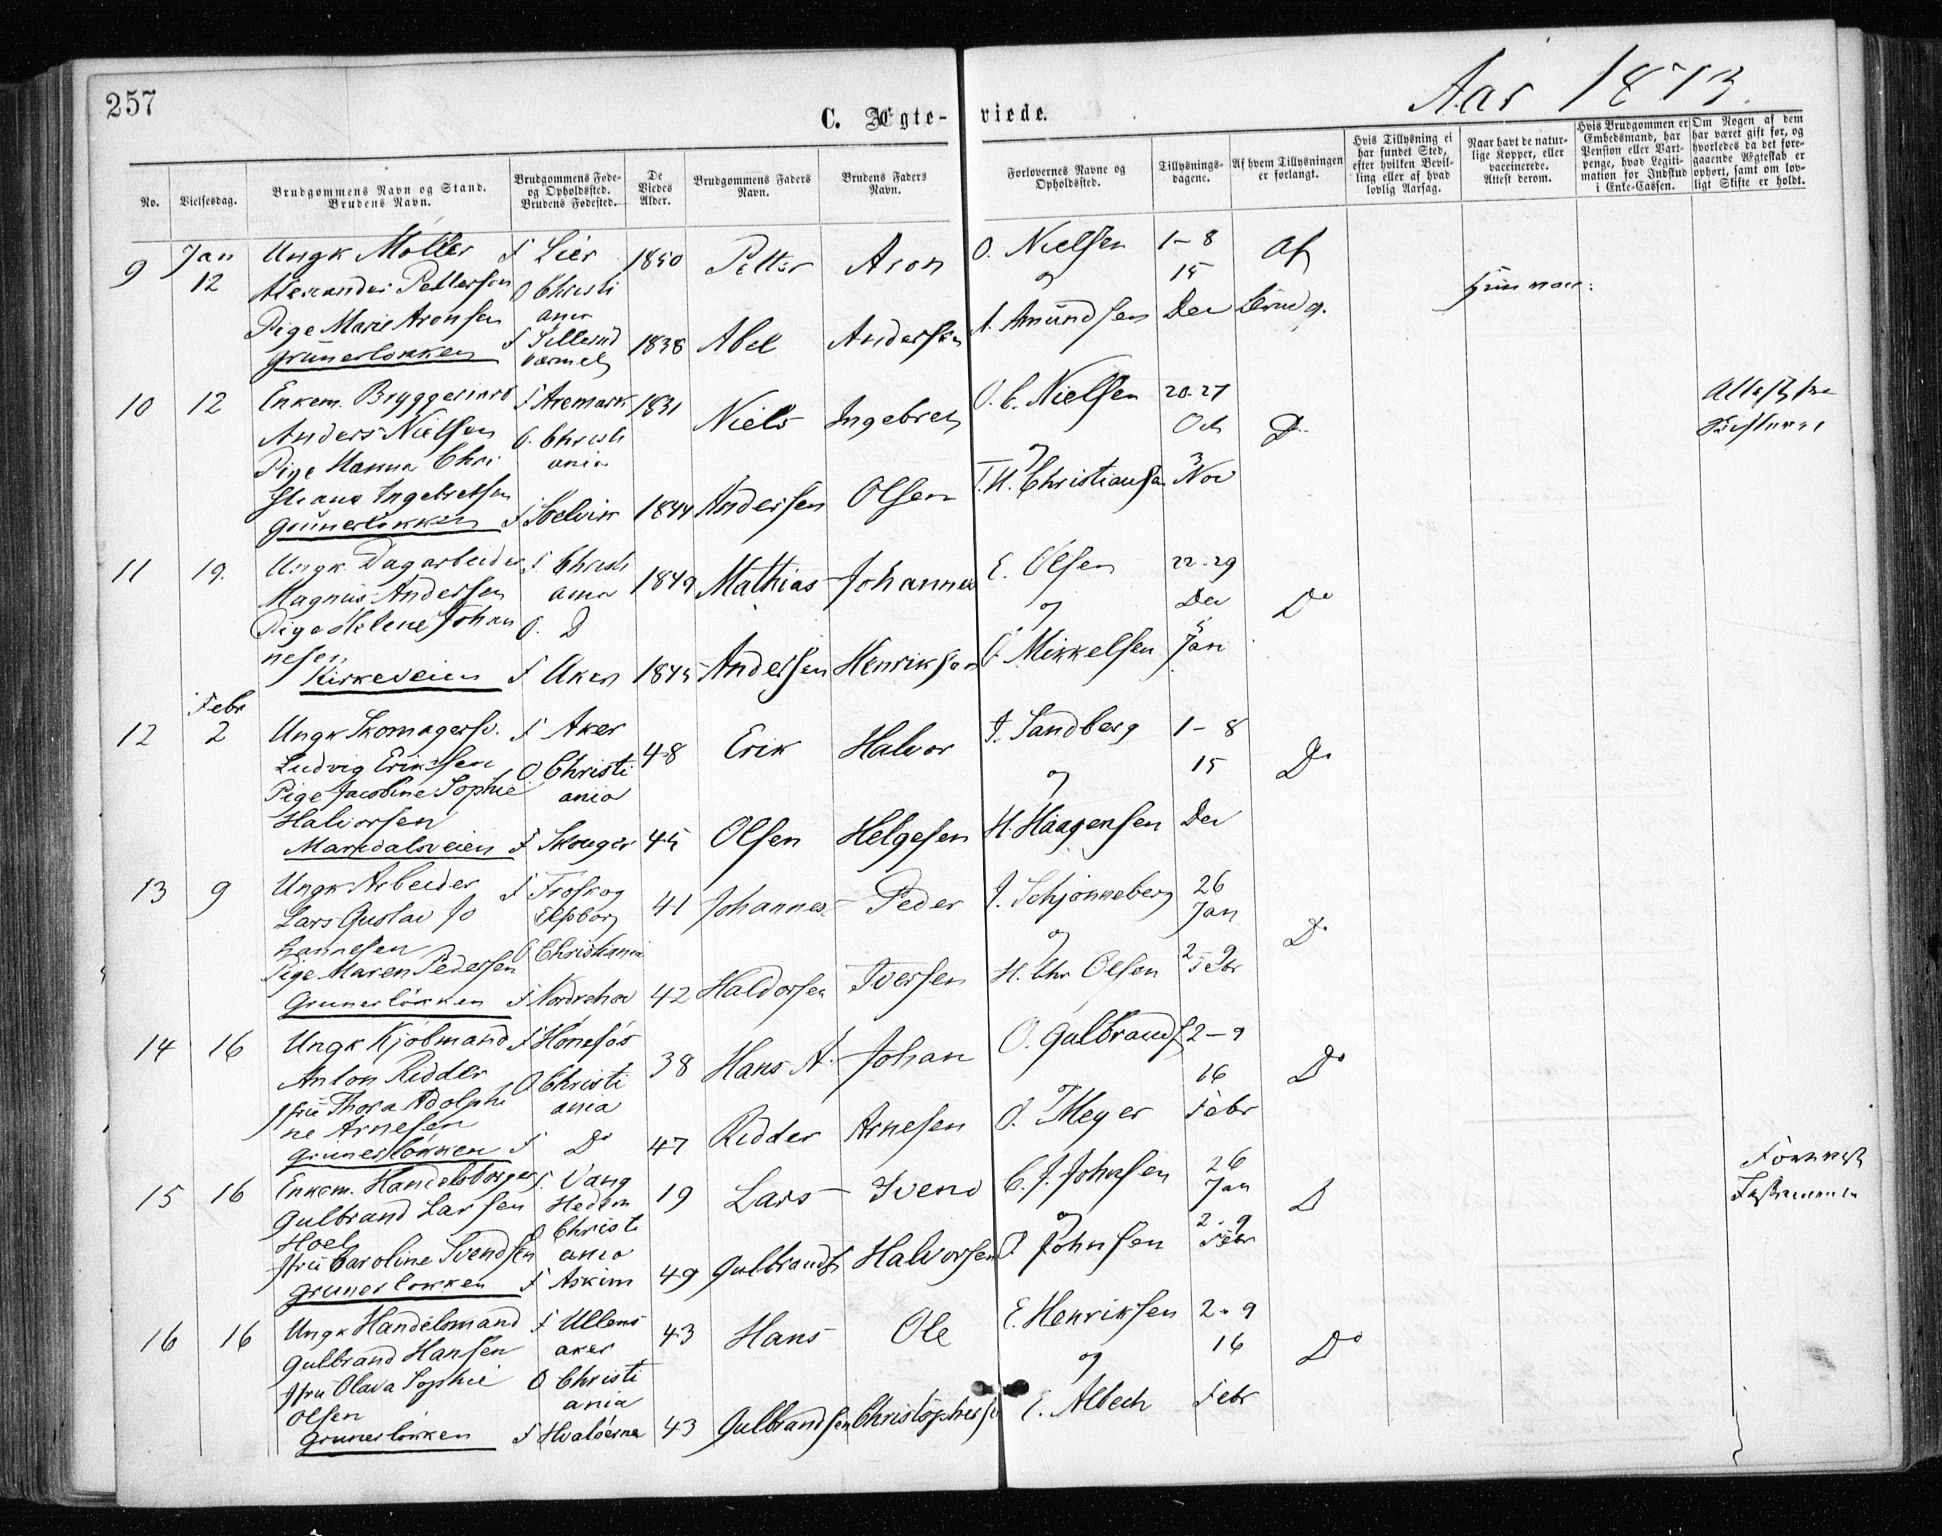 257
C. Ægte-
viede.
Aar 1873.
No.
Vielsesdag.
Brudgommens Navn og Stand.
Brudens Navn.
Brudgommens Føde-
og Opholdssted.
Brudens Fødested.
De
Viedes
Alder.
Brudgommens Faders
Navn.
Brudens Faders
Navn.
Forlovernes Navne og
Opholdssted.
Tillysnings-
dagene.
Af hvem Tillysningen
er forlangt.
Hvis Tillysning ei
har fundet Sted,
efter hvilken Bevil-
ling eller af hvad
lovlig Aarsag.
Naar havt de natur-
lige Kopper, eller
vaccinerede.
Attest derom.
Hvis Brudgommen er
Embedsmand, har
Pension eller Vart-
penge, hvad Legiti-
mation for Indskud
i Enke-Cassen.
Om Nogen af dem
har været gift før, og
hvorledes da det fore-
gaaende Ægteskab er
ophørt, samt om lov-
ligt Skifte er holdt.
9 Jan 12
Ungk Møller F Lier 1850 Petter Aron O. Nielsen 1-8 Af
Alexander Pettersen O Christi og 15
Pige Marie Aronsen ania A. Amundsen Der Brudg.
Grünerløkken F 1838 Abel Andersen
10 12 Enkem. Bryggeriarb F Aremark 1831 Niels Ingebret O. C. Nielsen 20-27
Anders Nielsen O. Christi Oct D
Pige Hanna Chri ania og 3
stiane Ingebretsen T. H. Christiansen Nov
Grünerløkken F Svelvik 1844 Andersen Olsen
11 19. Ungk. Dagarbeider F. Christi 1849 Mathias Johannes E. Olsen 22-29
Magnus Andersen ania og Der Do
Pige Helene Johan O. D 5
nesen O. Mikkelsen Jan
Kirkeveien F Aker 1845 Andersen Henriksen
12 Febr 2
Ungk Skomagersv. F Aker 48 Erik Halvor J. Sandberg 1-8
Ludvig Eriksen O Christi og 15 Do
Pige Jacobine Sophie ania
Halvorsen H. Haagensen Der
Maridalsveien F Skouger 45 Olsen Helgesen
13 9 Ungk Arbeider F 41 Johannes Peder J. Schjønneberg 26
Lars Gustav Jo Elfsborg Jan
hannesen O Christiania og 2-9 Do
Pige Maren Pedersen H. Chr Olsen Febr
Grünerløkken F Norderhov 42 Haldorsen Iversen
14 16 Ungk Kjøbmand F Hønefos 38 Hans A. Johan O. Gulbrands 2-9
Anton Ridder O Christi 16 Do
Jfru Thora Adolphi ania og Febr
ne Arnesen O. Meyer
Grünerløkken F Do 47 Ridder Arnesen
15 16 Enkem. Handelsborger F. Vang 19 Lars Svend C. J. Johnsen 26
Gulbrand Larsen Hedem Jan D
Hoel O Christi og 2-9
Jfru Caroline Svendsen ania Johnsen Febr
Grünerløkken F Askim 49 Gulbrands Halvorsen
16 16 Ungk Handelsmand F Ullens 43 Hans Ole E. Henriksen 2-9
Gulbrand Hansen aker 16 Do
Jfru Olava Sophie O Christi og
Olsen ania E. Albech Febr
Grünerløkken F Hvaløerne 43 Gulbrandsen Christophersen